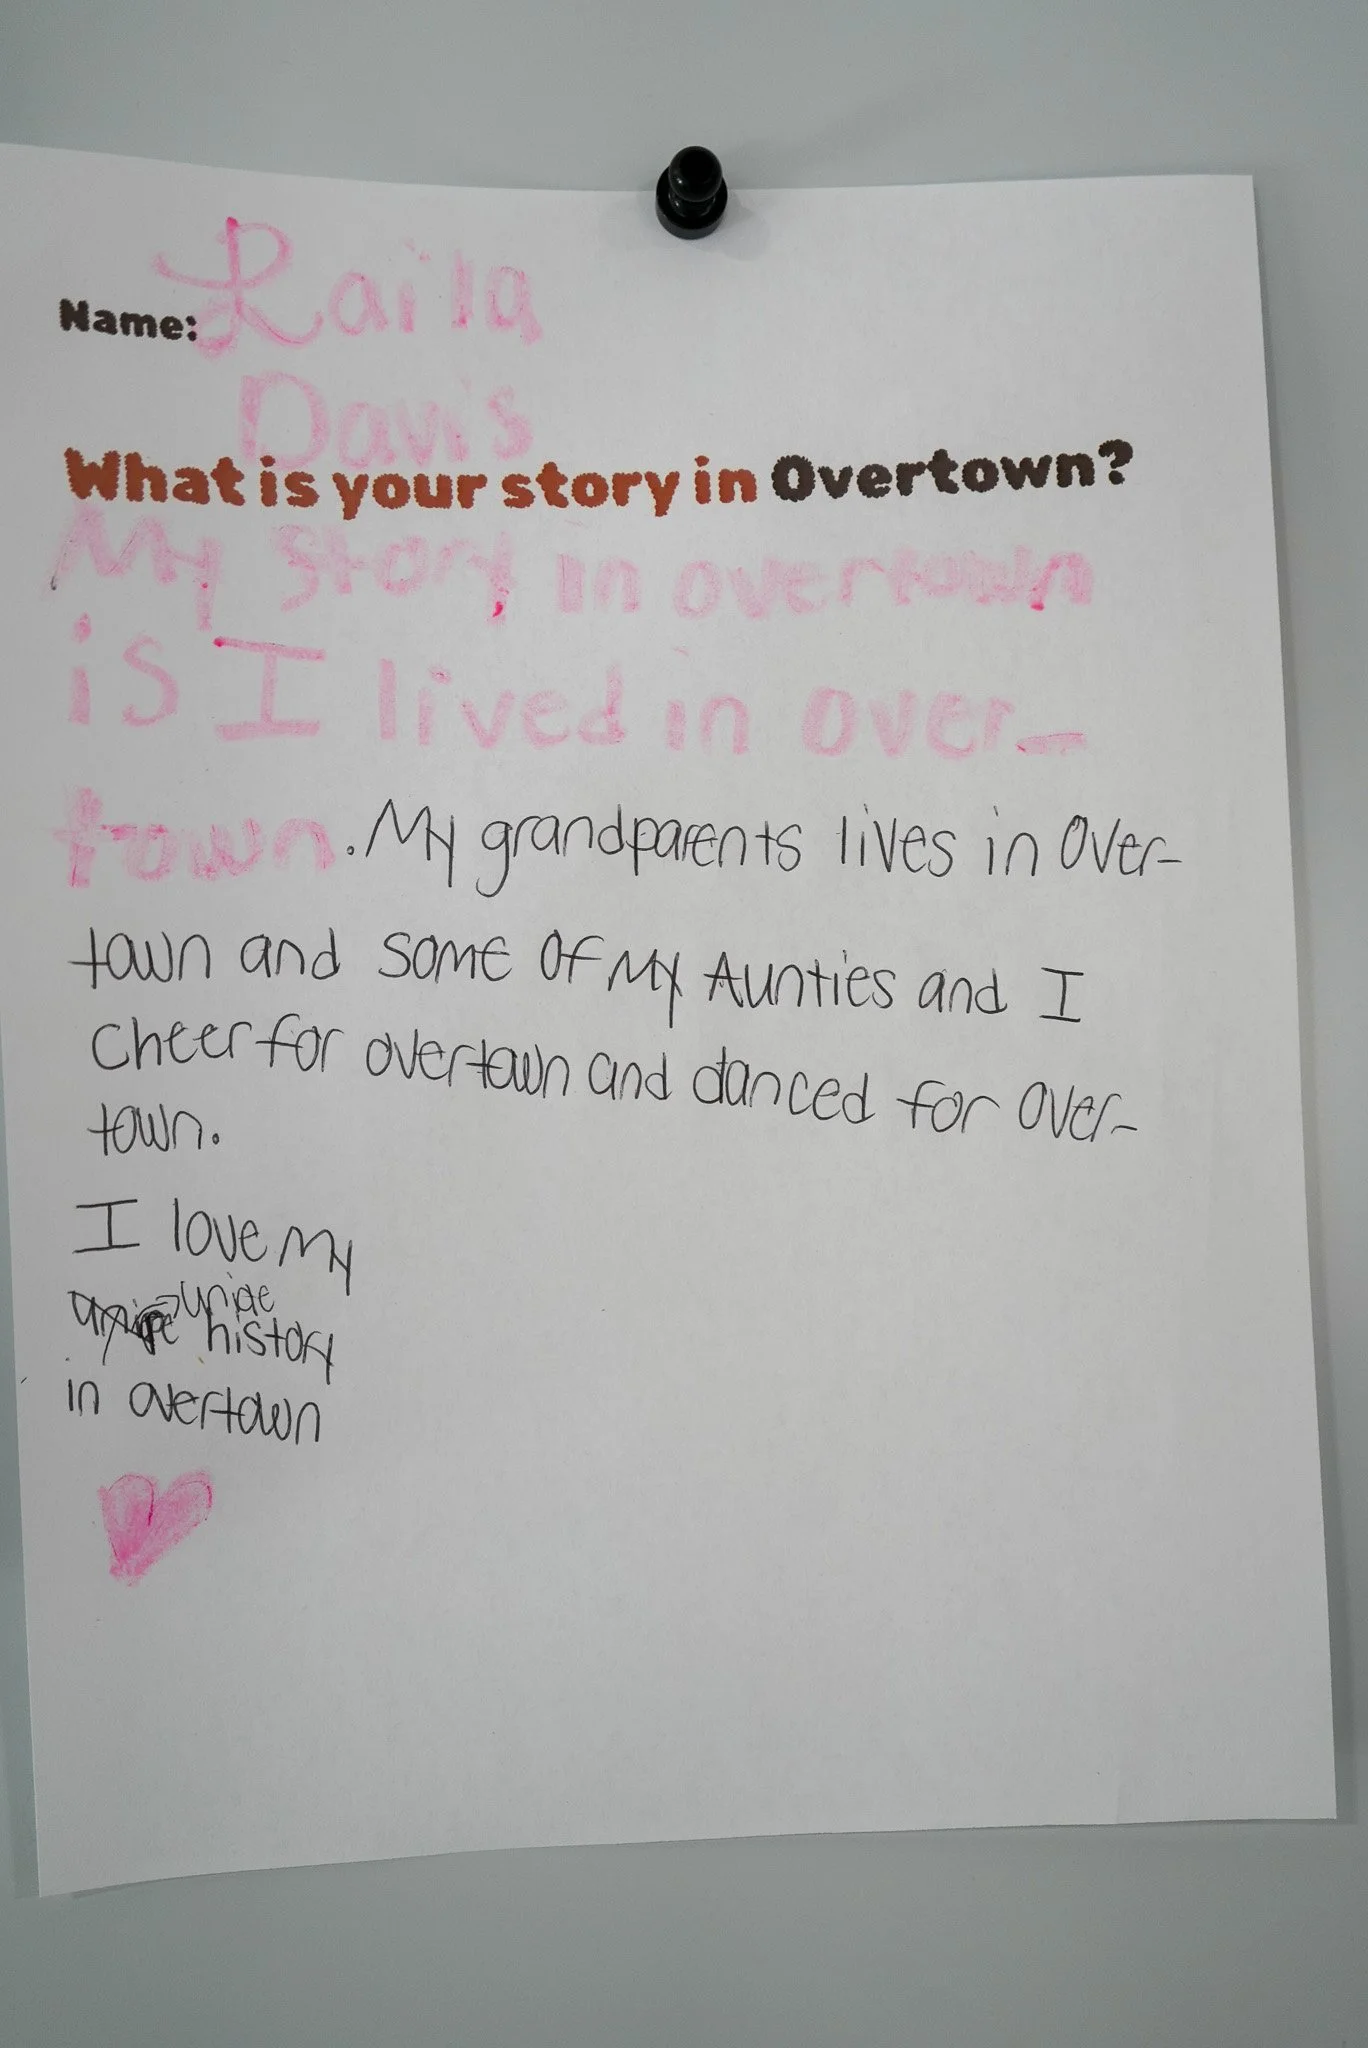 Name: Laila
Davis
What is your story in Overtown?
My story in overtown
is I lived in over-
town. My grandparents lives in Over-
town and some of My Aunties and I
cheer for overtown and danced for over-
town.
I love my
unide
history
in overtown